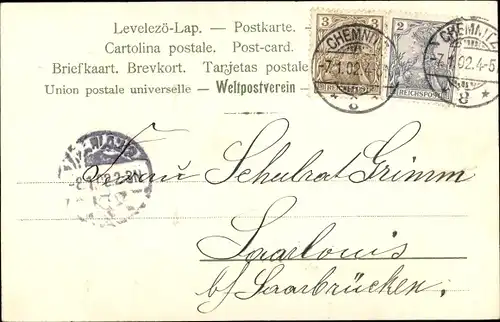 Levelezö-Lap. — Postkarte. —
Cartolina postale. Post-card.
Briefkaart. Brevkort. Tarjetas postale
Union postale universelle — Weltpostverein —
3 3
2
REICHSPOST
CHEMNITZ
-7.1.02.4-
8
CHEMNITZ
7.1.02.4-5
8
Frau Schulrat Grimm
Saarlouis
b/ Saarbrücken.